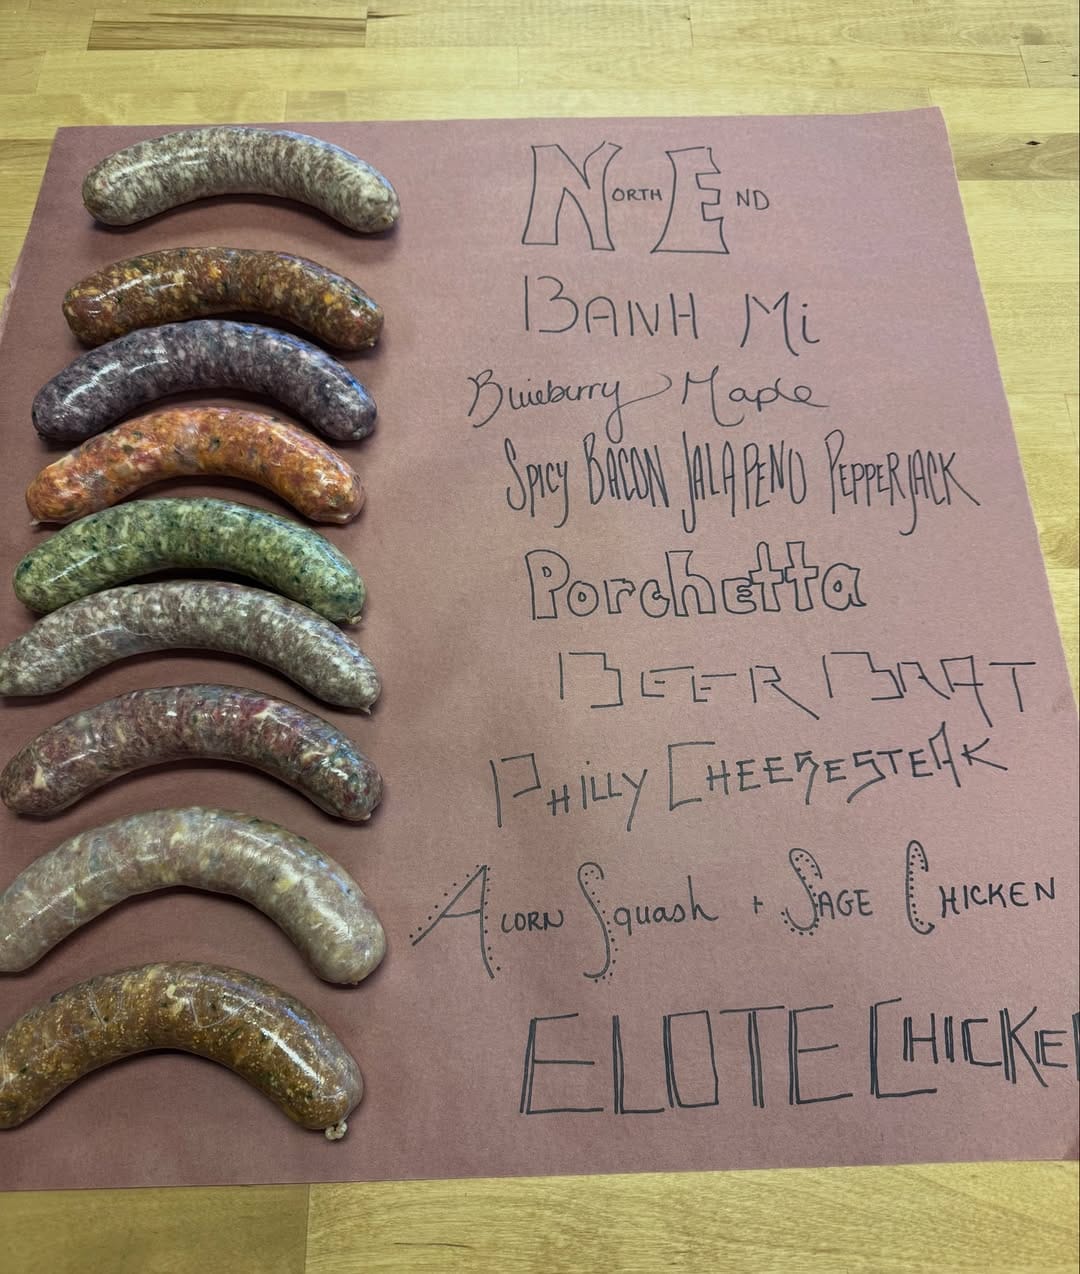 NORTH END
BANH Mi
Blueberry Maple
SPICY BACON JALAPENO PEPPERJACK
Porchetta
BEER BRAT
PHiLLY CHEESESTEAK
ACORN Squash + SAGE CHICKEN
ELOTE CHICKE